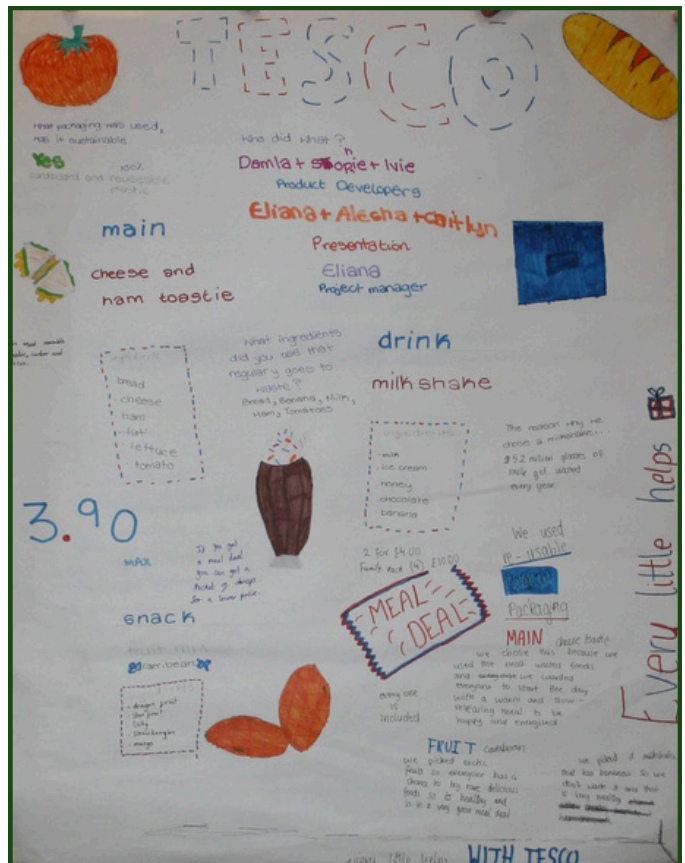 TESCO
What packaging was used,
was it sustainable
Yes
100%
cardboard and reuseable
plastic
Who did what?
Damla + Sophie + Ivie
Product Developers
Eliana + Alesha + Caitlyn
Presentation
Eliana
Project manager
main
cheese and
ham toastie
ingredients
bread
cheese
ham
lettuce
tomato
What ingredients
did you use that
regulary goes to
waste?
Bread, Banana, Milk,
Ham, Tomatoes
drink
milkshake
ingredients
milk
ice cream
honey
chocolate
banana
The reason why we
chose a milkshake..
5.2 million glasses of
milk get wasted
every year.
3.90
MAX
If you get
a meal deal
you can get a
for a lower price.
2 for £4.00
Family Pack (4) £10.00
MEAL
DEAL
We used
re-usable
Packaging
Every little helps
snack
fruit mix
carribean
dragon fruit
star fruit
Strawberries
mango
every one
is
included
MAIN
we chose this because we
used the most wasted foods
and we wanted
everyone to start the day
with a warm and
meal to be
happy and energised
FRUIT
we picked exotic
fruits so everyone has a
chance to try more delicious
foods so its healthy and
is in a very good meal deal
we picked a milkshake
that has bananas so we
don't waste it and that
is very healthy
every little helps
WITH TESCO